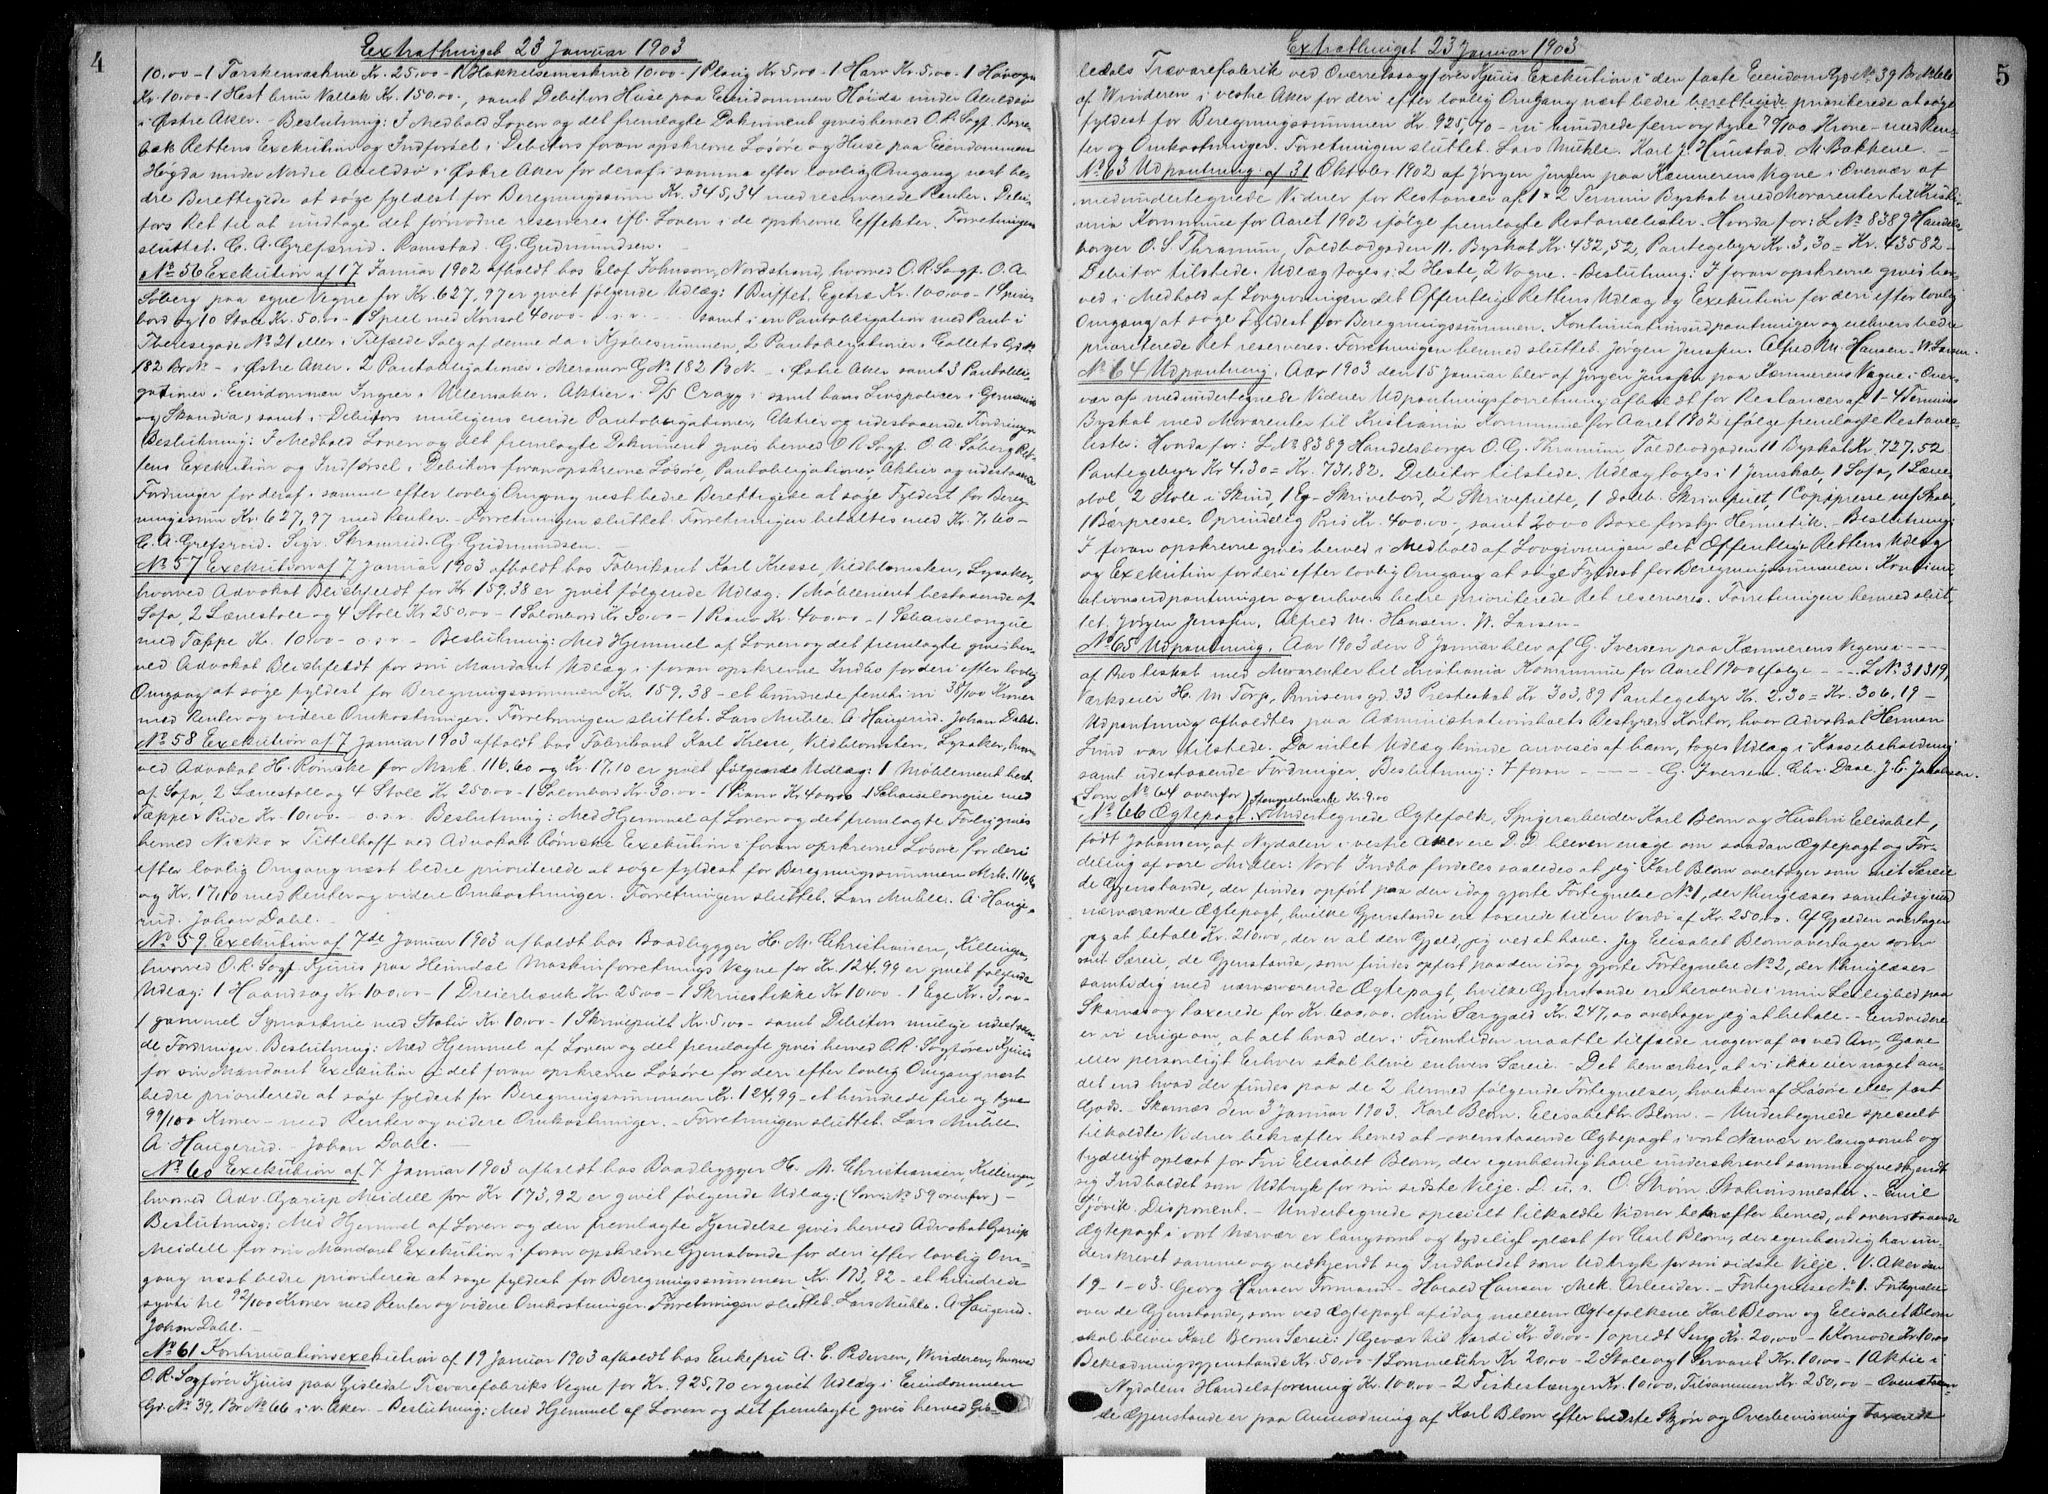 4
Extrathinget 23 Januar 1903
10,00 - 1 Tærskemaskine Kr. 25,00 - 1 Hakkelsemaskine 10,00 - 1 Ploug Kr 5,00 - 1 Harv Kr. 5,00 - 1 Høvogn
Kr. 10,00 - 1 Hest brun Vallak Kr. 150,00 -, samt Debitors Huse paa Eiendommen Høida under Abildsø
i Østre Aker. - Beslutning: I Medhold Loven og det fremlagte Dokument gives herved O.R. Sagf.
Rettens Exekution og Indførsel i Debitors foran opskrevne Løsøre og Huse paa Eiendommen
Høgda under Nordre Abildsø i Østre Aker for deraf i samme efter lovlig Omgang næst be-
dre Berettigede at søge fyldest for Beregningssum Kr. 345,34 med reserverede Renter. Debi-
tors Ret til at undtage det fornødne reserveres efl. Loven i de opskrevne Effekter. Forretningen
sluttet. C. A. Grefsrud. Ramstad. G. Gudmundsen.
No 56 Exekution af 17 Januar 1902 afholdt hos Elof Johnson, Nordstrand, hvorved O.R. Sagf. O. A.
Søberg paa egne Vegne for Kr. 627,97 er givet følgende Udlæg: 1 Buffet, Egetræ Kr. 100,00 - 1 Spise-
bord og 10 Stole Kr. 50,00 - 1 Speil med Konsol 40,00 - o.s.v. - samt i en Pantobligation med Pant i
Theresegade No 21 eller i Tilfælde Salg af denne da i Kjøbesummen, 2 Pantobligationer i Collets Gd No
182 Br No - i Østre Aker. 2 Pantobligationer i G No 182 B N. - i Østre Aker samt 3 Pantobli-
gationer i Eiendommen i Ullensaker. Aktier i D/S Cragg i samt hans Livspolicer i Germania
og Skandia, samt i Debitors muligens eiende Pantobligationer, Aktier og udestaaende Fordringer
Beslutning: I Medhold Loven og det fremlagte Dokument gives herved O R Sagf. O. A. Søberg Ret-
tens Exekution og Indførsel i Debitors foran opskrevne Løsøre, Pantobligationer, Aktier og udestaaende
Fordringer for deraf i samme efter lovlig Omgang næst bedre Berettigede at søge Fyldest for Bereg-
ningssum Kr. 627,97 med Renter. - Forretningen sluttet. Forretningen betaltes med Kr. 7,60 -
C. A. Grefsrud. Sigv. Skramrud. G. Gudmundsen.
No 57 Exekution af 7 Januar 1903 afholdt hos Fabrikant Karl Kresse, Vildblomsten, Lysaker,
hvorved Advokat Blichfeldt for Kr 159,38 er givet følgende Udlæg: 1 Møblement bestaaende af
Sofa, 2 Lænestole og 4 Stole Kr 250,00 - 1 Salonbord Kr 30,00 - 1 Piano Kr. 400,00 - 1 Schaiselongue
med Tæppe Kr. 10,00 - o.s.v. - Beslutning: Med Hjemmel af Loven og det fremlagte gives her-
ved Advokat Blichfeldt for sin Mandant Udlæg i foran opskrevne Indbo for deri efter lovlig
Omgang at søge fyldest for Beregningssummen Kr. 159,38 - et hundrede femti ni 38/100 Kroner
med Renter og videre Omkostninger. Forretningen sluttet. Lars Muhle. A Haugerud. Johan Dahl.
No 58 Exekution af 7 Januar 1903 afholdt hos Fabrikant Karl Kresse, Vildblomsten, Lysaker, hvor-
ved Advokat H. Rømcke for Mark. 116,60 og Kr. 17,10 er givet følgende Udlæg: 1 Møblement best.
af Sofa, 2 Lænestole og 4 Stole Kr. 250,00 - 1 Salonbord Kr. 30,00 - 1 Piano Kr. 400,00 1 Schaiselongue med
Tæppe & Pude Kr. 10,00 - o.s.v. Beslutning: Med Hjemmel af Loven og det fremlagte Forlig gives
herved Nicko & Tittelhoff ved Advokat Rømcke Exekution i foran opskrevne Løsøre for deri
efter lovlig Omgang næst bedre prioriterede at søge fyldest for Beregningssummen Mrk. 116,60
og Kr. 17,10 med Renter og videre Omkostninger. Forretningen sluttet. Lars Muhle. A. Hauge-
rud. Johan Dahl. -
No 59 Exekution af 7de Januar 1903 afholdt hos Baadbygger H. M. Christiansen, Killingen,
hvorved O. R. Sagf. Kjuus paa Heimdal Maskinforretnings Vegne for Kr. 124,99 er givet følgende
Udlæg: 1 Haandsag Kr. 100,00 - 1 Dreierbænk Kr. 25,00 - 1 Skruestikke Kr 10,00 - 1 Ege Kr. 3,00 -
1 gammel Symaskine med Stativ Kr. 10,00 - 1 Skrivepult Kr. 5,00 - samt Debitors mulige udestaaen-
de Fordringer. Beslutning: Med Hjemmel af Loven og det fremlagte gives herved O.R. Sagfører Kjuus
for sin Mandant Exekution i det foran opskrevne Løsøre for deri efter lovlig Omgang næst
bedre prioriterede at søge fyldest for Beregningssummen Kr. 124,99 - et hundrede fire og tyve
99/100 Kroner - med Renter og videre Omkostninger. - Forretningen sluttet. Lars Muhle
A. Haugerud. - Johan Dahl. -
No 60 Exekution af 7 Januar 1903 afholdt hos Baadbygger H. M. Christiansen, Killingen,
hvorved Adv. Garup Meidell for Kr 173,92 er givet følgende Udlæg: (Som No 59 ovenfor) -
Beslutning: Med Hjemmel af Loven og den fremlagte Kjendelse gives herved Advokat Garup
Meidell for sin Mandant Exekution i foran opskrevne Gjenstande for deri efter lovlig Om-
gang næst bedre prioriterede at søge fyldest for Beregningssummen Kr. 173,92 - et hundrede
sytti tre 92/100 Kroner med Renter og videre Omkostninger. Forretningen sluttet. Lars Muhle. A Haugerud.
Johan Dahl. -
No 61 Kontinuationsexekution af 19 Januar 1903 afholdt hos Enkefru A. E. Pedersen, Vinderen, hvorved
O.R. Sagfører Kjuus paa Gisledal Trævarefabriks Vegne for Kr. 925,70 er givet Udlæg i Eiendommen
Gd. No 39, Br. No 66 i v. Aker - Beslutning: Med Hjemmel af Loven og det fremlagte gives herved Gis-
5
Extrathinget 23 Januar 1903
ledals Trævarefabrik ved Overretssagfører Kjuus Exekution i den faste Eiendom Gd. No 39 Br. No 66
af Winderen i vestre Aker for deri efter lovlig Omgang næst bedre berettigede prioriterede at søge
fyldest for Beregningssummen Kr. 925,70 - ni hundrede fem og tyve 70/100 Krone - med Ren-
ter og Omkostninger. Forretningen sluttet. Lars Muhle. Karl J. Hunstad. M. Bakkene. -
No 63 Udpantning af 31 Oktober 1902 af Jørgen Jensen paa Kæmnerens Vegne i Overvær af
medundertegnede Vidner for Restanser af 1 & 2 Termin Byskat med Morarenter til Kristi-
ania Kommune for Aaret 1902 ifølge fremlagte Restanselister. Hvorda for: L No 8389 Handels-
borger O. S. Thramm, Toldbodgaden 11. Byskat Kr. 432,52, Pantegebyr Kr. 3,30 = Kr. 435 82 -
Debitor tilstede. Udlæg toges i: 2 Heste, 2 Vogne. - Beslutning: I foran opskrevne gives her-
ved i Medhold af Lovgivningen det Offentlige Rettens Udlæg og Exekution for deri efter lovlig
Omgang at søge Fyldest for Beregningssummen. Kontinuationsudpantninger og enhvers bedre
prioriterede Ret reserveres. Forretningen hermed sluttet. Jørgen Jensen. Alfred M. Hansen. W. Larsen.
No 64 Udpantning. Aar 1903 den 15 Januar blev af Jørgen Jensen paa Kæmnerens Vegne i Over-
vær af medundertegnede Vidner Udpantningsforretning afholdt for Restancer af 1-4 Termins
Byskat med Morarenter til Kristiania Kommune for Aaret 1902 ifølge fremlagte Restance-
lister. Hvorda for: L No 8389 Handelsborger O. G. Thramm Toldbodgaden 11 Byskat Kr. 727,52
Pantegebyr Kr 4,30 = Kr. 731,82. Debitor tilstede. Udlæg toges i 1 Jernskab, 1 Sofa, 1 Læne-
stol 2 Stole i Skind, 1 Eg-Skrivebord, 2 Skrivepulte, 1 dobb. Skrivepult, 1 Copipresse m/ Skab,
1 Bærpresse. Oprindelig Pris Kr. 400,00 -, samt 2000 Boxe forskj. Hermetik. - Beslutning:
I foran opskrevne gives herved i Medhold af Lovgivningen det Offentlige Rettens Udlæg
og Exekution for deri efter lovlig Omgang at søge Fyldest for Beregningssummen. Kontinu-
ationsudpantninger og enhvers bedre prioriterede Ret reserveres. Forretningen hermed slut-
tet. Jørgen Jensen, Alfred M. Hansen. W. Larsen -
No 65 Udpantning. Aar 1903 den 8 Januar blev af G. Iversen paa Kæmnerens Vegne i - - -
af Resteskat med Morarenter til Kristiania Kommune for Aaret 1900 ifølge - - - L No 31319,
Værkseier H. M Torp, Prinsens gd. 33 Resteskat Kr 303,89 Pantegebyr Kr. 2,30 = Kr. 306,19 -
Udpantning afholdtes paa Administrationsboets Bestyrers Kontor, hvor Advokat Herman
Lund var tilstede. Da intet Udlæg kunde anvises af ham, toges Udlæg i Kassebeholdning
samt udestaaende Fordringer. Beslutning: I foran - - - - - G. Iversen. Chr. Daae. J. E. Jakobsen.
(Som No 64 ovenfor) Stempelmærke Kr. 9.00
No 66 Ægtepagt. Undertegnede Ægtefolk, Spigerarbeider Karl Blom og Hustru Elisabet,
født Johansen, af Nydalen i vestre Aker ere D.D. bleven enige om saadan Ægtepagt og For-
deling af vore Midler: Vort Indbo fordeles saaledes at jeg Karl Blom overtager som mit Særeie
de Gjenstande, der findes opført paa den idag gjorte Fortegnelse No 1, der thinglæses samtidig med
nærværende Ægtepagt, hvilke Gjenstande ere taxerede til en Værdi af Kr. 250,00. Af Gjælden overtager
jeg at betale Kr. 210,00, der er al den Gjæld, jeg ved at have. Jeg Elisabet Blom overtager som
mit Særeie, de Gjenstande, som findes opført paa den idag gjorte Fortegnelse No 2, der thinglæses
samtidig med nærværende Ægtepagt, hvilke Gjenstande ere beroende i min Leilighed paa
Skarnæs og taxerede for Kr. 600,00. Min Særgjæld Kr. 247,00 overtager jeg at betale. - Endvidere
er vi enige om, at alt hvad der i Fremtiden maatte tilfalde nogen af os ved Arv, Gave
eller personligt Erhverv skal blive enhvers Særeie. - Det bemærkes, at vi ikke eier noget an-
det end hvad der findes paa de 2 hermed følgende Fortegnelser, hverken af Løsøre eller fast
Gods. - Skarnæs den 3 Januar 1903. Karl Blom. Elisabeth Blom. - Undertegnede specielt
tilkaldte Vidner bekræfter herved at ovenstaaende Ægtepagt i vort Nærvær er langsomt og
tydeligt oplæst for Fru Elisabet Blom, der egenhændig have underskrevet samme og vedkjendt
sig Indholdet som Udtryk for sin sidste Vilje. D. u. s. O. Strøm, Stationsmester. - Emil
Sjøvik Disponent. - Undertegnede specielt tilkaldte Vidner bekræfter herved, at ovenstaaende
Ægtepagt i vort Nærvær er langsomt og tydeligt oplæst for Carl Blom, der egenhændig har un-
derskrevet samme og vedkjendt sig Indholdet som Udtryk for sin sidste Vilje. V. Aker den
19-1-03. Georg Hansen Formand - Harald Hansen Mek. Arbeider. - Fortegnelse No 1. Fortegnelse
over de Gjenstande, som ved Ægtepagt af idag mellem Ægtefolkene Karl Blom og Elisabet Blom
skal bliver Karl Bloms Særeie: 1 Gevær til Værdi Kr. 30,00 - 1 opredt Seng Kr. 20,00 - 1 Komode Kr 10.00
Beklædningsgjenstande Kr. 50,00 - 1 Lommeuhr Kr 20,00 - 2 Stole og 1 Servant Kr. 10,00 - 1 Aktie i
Nydalens Handelsforening Kr. 100,00 - 2 Fiskestænger Kr. 10,00, Tilsammen Kr. 250,00 - Ovenstaaen-
de Gjenstande er paa Anmodning af Karl Blom efter bedste Skjøn og Overbevisning taxerede